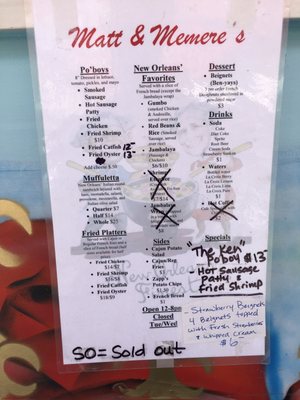 Matt & Memere's
Po'boys
8" Dressed in lettuce,
tomato, pickles, and mayo
• Smoked
Sausage
• Hot Sausage
Patty
• Fried
Chicken
• Fried Shrimp
$10
• Fried Catfish 12⁰⁰
• Fried Oyster 13⁰⁰
Add cheese $.50
Muffuletta
New Orleans' Italian round
sandwich
provolone, mozzarella, and
Italian olive salad
• Quarter $7
• Half $14
• Whole $25
Fried Platters
Served with Cajun or
Regular French fries and a
slice of French bread
• Fried Chicken
$14/$7
• Fried Shrimp
$16/$8
• Fried Catfish
$16/$8
• Fried Oyster
$18/$9
New Orleans'
Favorites
Served with a slice of
French bread (except the
Jambalaya wrap)
• Gumbo
(smoked Chicken
& Andouille,
served over rice)
• Red Beans &
Rice (Smoked
Sausage, served
over rice)
• Jambalaya
(Smoked
Sausage &
Chicken)
$6/$10
• Shrimp
• Jambalaya
Wrap
Sides
• Cajun Potato
Salad
• Cajun/Reg
Fries
$3
• Zapp's
Potato Chips
$1.50
• French Bread
$1
Open 12-8pm
Closed
Tue/Wed
Dessert
• Beignets
(Ben-yays)
3 per order French
Doughnuts smothered in
powdered sugar
$3
Drinks
• Soda
Coke
Diet Coke
Sprite
Root Beer
Cream Soda
Strawberry Sunkist
$1
• Waters
Bottled water
La Croix Berry
La Croix Lime
La Croix Pure
$1
• Hot Coffee
Specials
"The Ken"
Poboy $13
Hot Sausage
Patty &
Fried Shrimp
- Strawberry Beignets
4 Beignets topped
with Fresh Strawberries
& Whipped Cream
$6
SO = Sold out